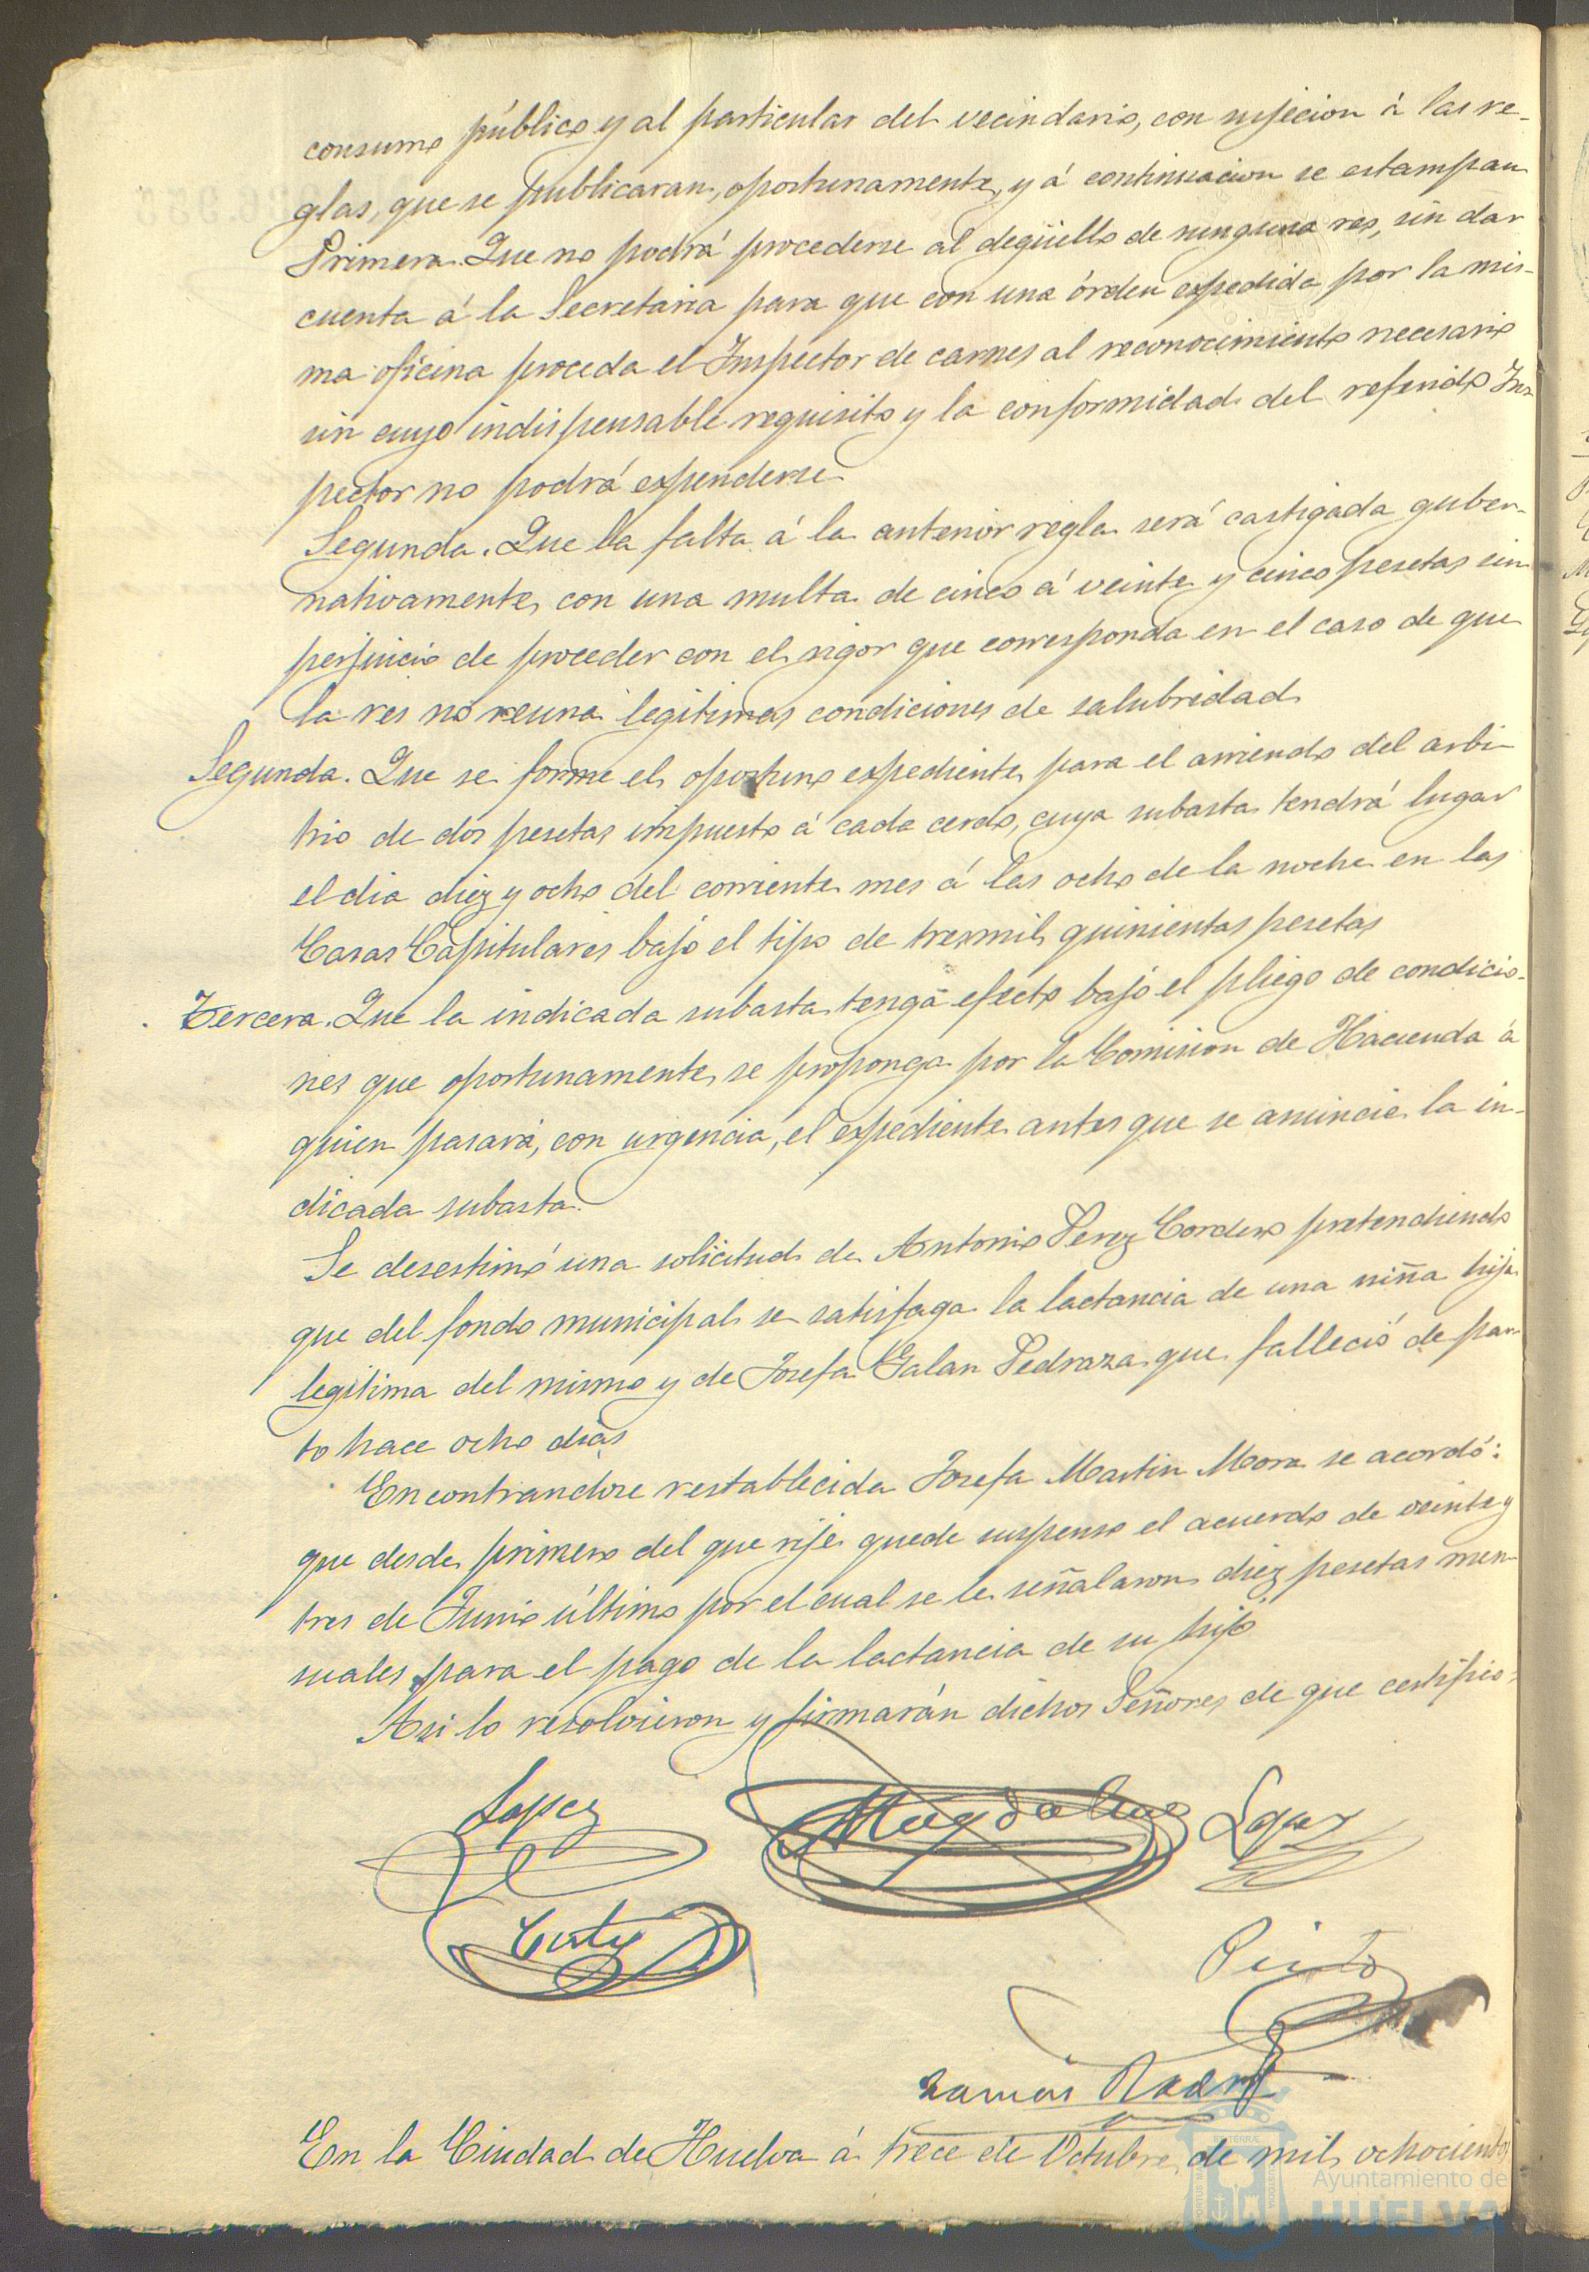 consumo público y al particular del vecindario, con sujecion á las re-
glas, que se publicaran, oportunamente, y á continuacion se estampan
Primera. Que no podrá procederse al degüello de ninguna res, sin dar
cuenta á la Secretaria para que con una órden expedida por la mis-
ma oficina proceda el Inspector de carnes al reconocimiento necesario
sin cuyo indispensable requisito y la conformidad del referido Ins
pector no podrá expenderse
Segunda. Que la falta á la anterior regla será castigada guber-
nativamente, con una multa de cinco á veinte y cinco pesetas sin
perjuicio de proceder con el rigor que corresponda en el caso de que
la res no reuna legitimas condiciones de salubridad
Segunda. Que se forme el oportuno expediente para el arriendo del arbi-
trio de dos pesetas impuesto á cada cerdo, cuya subasta tendrá lugar
el dia diez y ocho del corriente mes á las ocho de la noche en las
Casas Capitulares bajo el tipo de tresmil quinientas pesetas
Tercera. Que la indicada subasta tenga efecto bajo el pliego de condicio-
nes que oportunamente se proponga por la Comision de Hacienda á
quien pasará, con urgencia, el expediente antes que se anuncie la in-
dicada subasta.
Se desestimó una solicitud de Antonio Perez Cordero pretendiendo
que del fondo municipal se satisfaga la lactancia de una niña hija
legitima del mismo y de Josefa Galan Pedraza que falleció de par
to hace ocho dias
Encontrandose restablecida Josefa Martin Mora se acordó:
que desde primero del que rije quede suspenso el acuerdo de veinte y
tres de Junio último por el cual se le señalaron diez pesetas men-
suales para el pago de la lactancia de su hijo
Asi lo resolvieron y firmarán dichos Señores de que certifico.
Lopez Magdaleno Lopez
Pinto
En la Ciudad de Huelva á trece de Octubre, de mil ochocientos
Ayuntamiento de
HUELVA